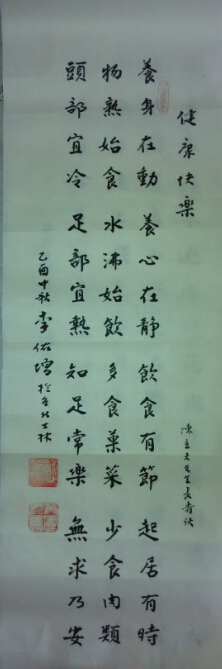 健康快樂
養身在動養心在靜飲食有節起居有時
物熟始食水沸始飲多食菜菜少食肉類
頭部宜冷足部宜熱知足常樂無求乃安
陳立夫先生長壽訣
乙酉中秋李佑增於台北士林